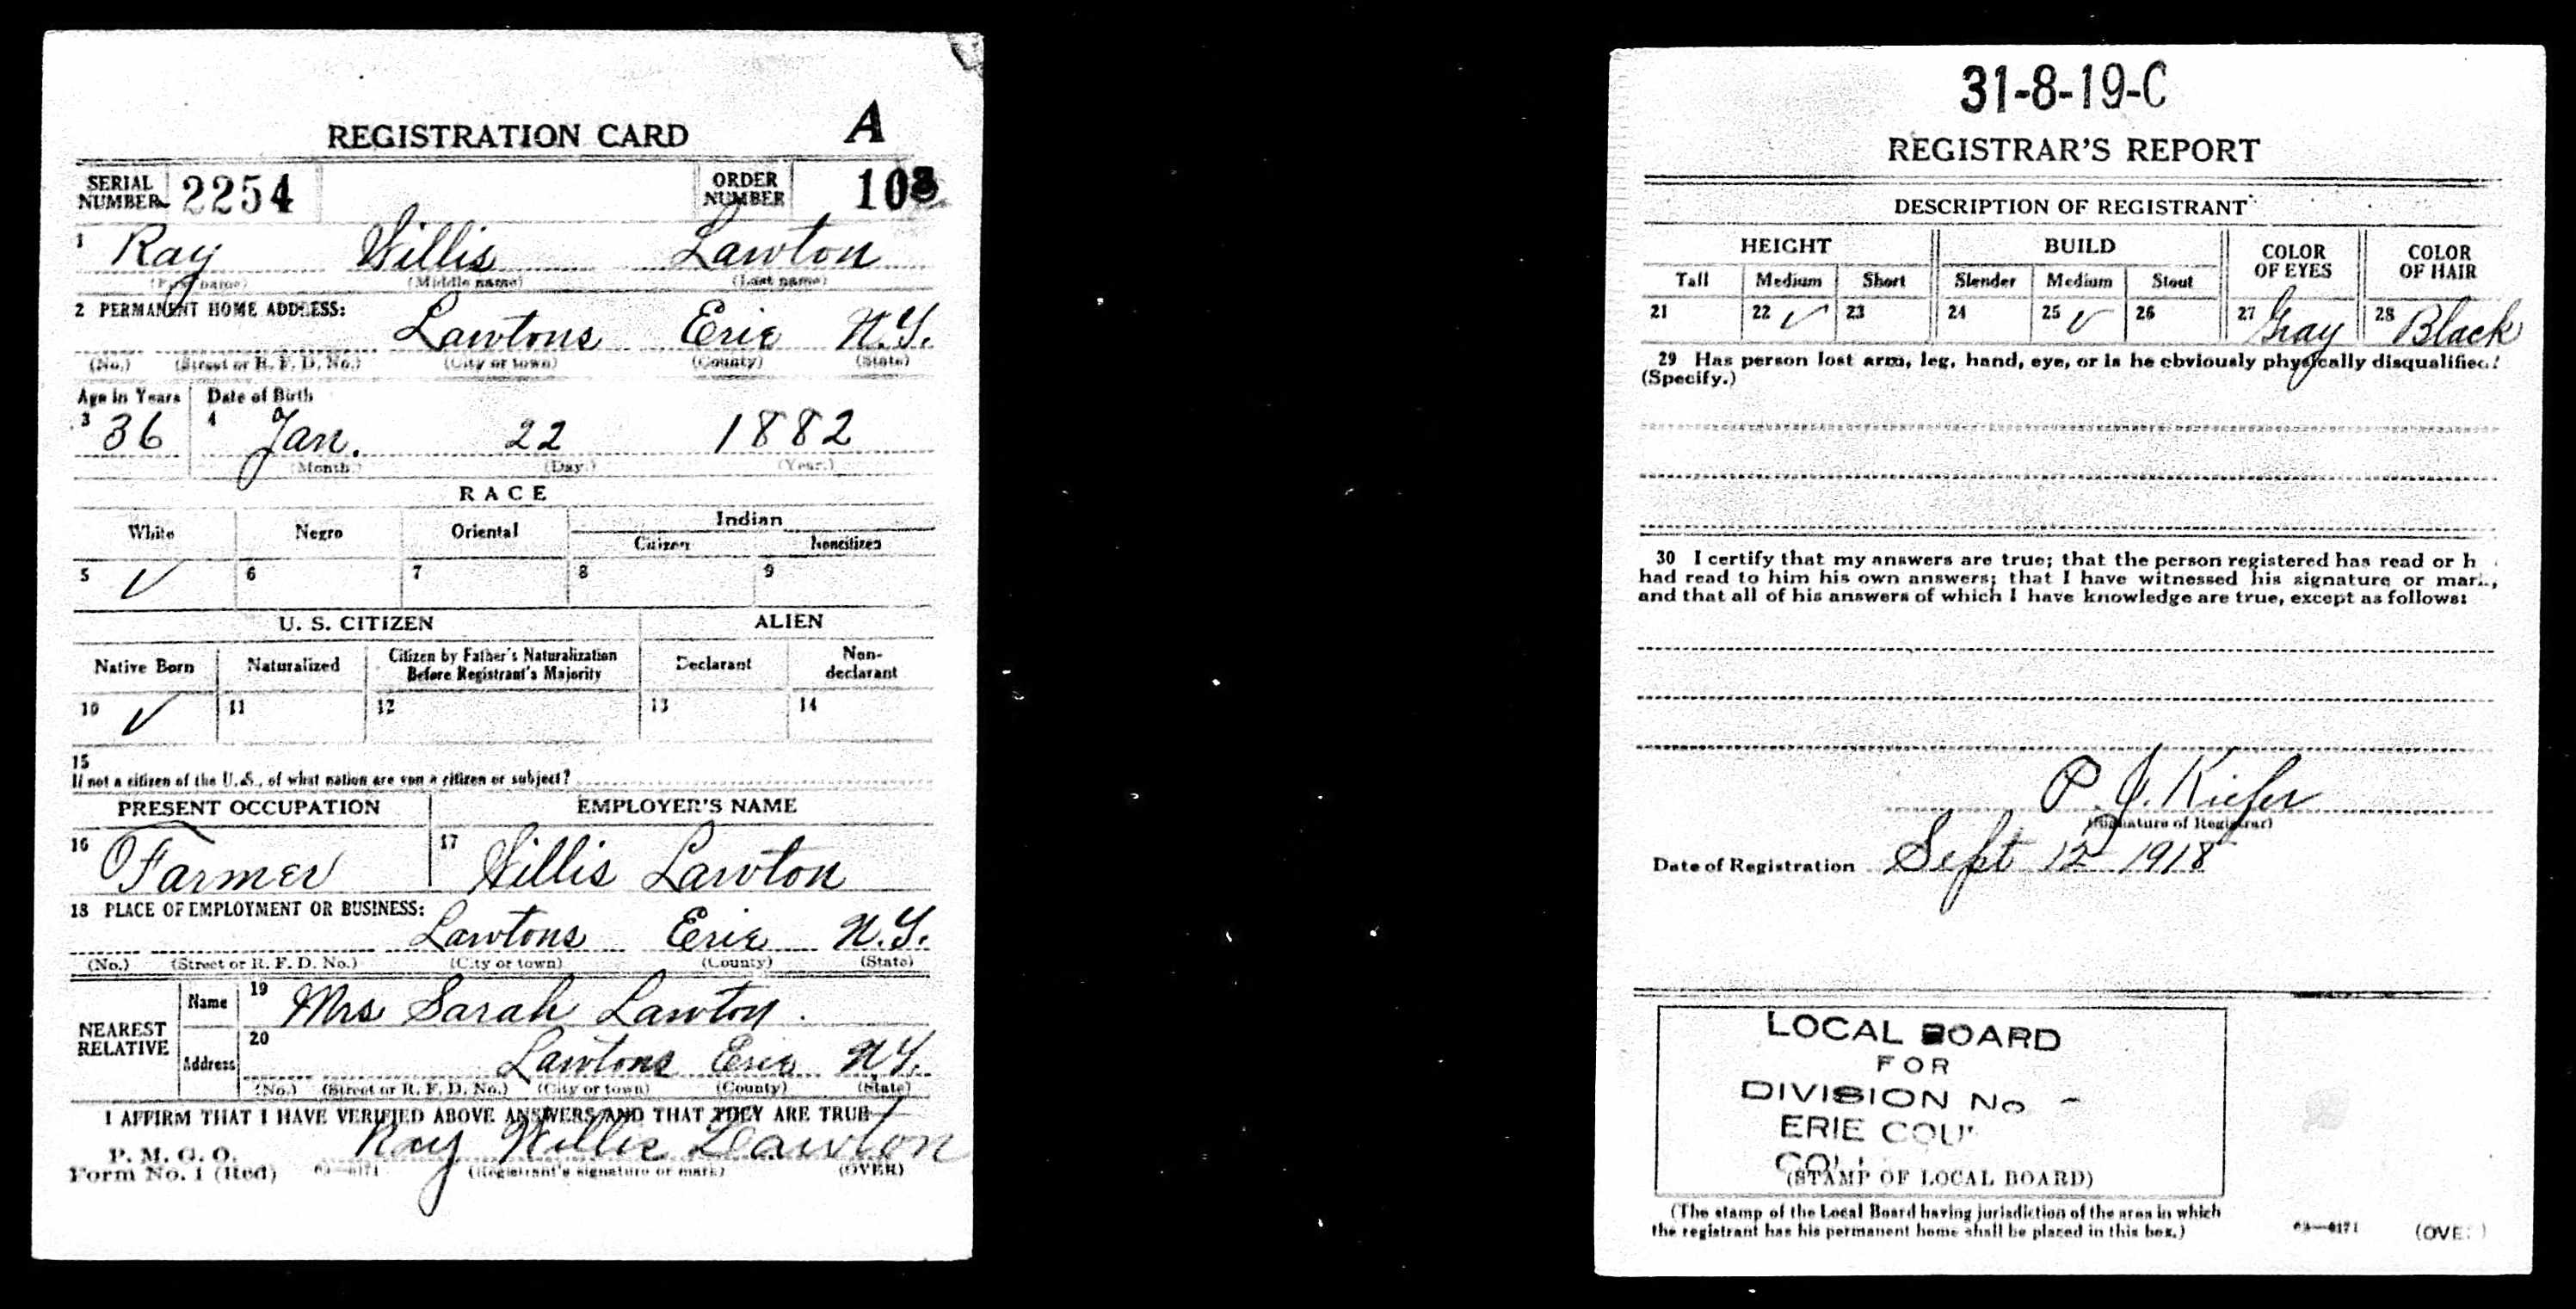 REGISTRATION CARD A
SERIAL NUMBER 2254 ORDER NUMBER 103
1 Ray Willis Lawton
(First name) (Middle name) (Last name)
2 PERMANENT HOME ADDRESS:
Lawtons Erie N.Y.
(No.) (Street or R. F. D. No.) (City or town) (County) (State)
Age in Years Date of Birth
3 36 4 Jan. 22 1882
(Month.) (Day.) (Year.)
RACE
White Negro Oriental Indian
Citizen Noncitizen
5 ✓ 6 7 8 9
U. S. CITIZEN ALIEN
Native Born Naturalized Citizen by Father's Naturalization Before Registrant's Majority Declarant Non-declarant
10 ✓ 11 12 13 14
15
If not a citizen of the U.S., of what nation are you a citizen or subject?
PRESENT OCCUPATION EMPLOYER'S NAME
16 Farmer 17 Willis Lawton
18 PLACE OF EMPLOYMENT OR BUSINESS:
Lawtons Erie N.Y.
(No.) (Street or R. F. D. No.) (City or town) (County) (State)
NEAREST RELATIVE
Name 19 Mrs Sarah Lawton.
Address 20 Lawtons Erie N.Y.
(No.) (Street or R. F. D. No.) (City or town) (County) (State)
I AFFIRM THAT I HAVE VERIFIED ABOVE ANSWERS AND THAT THEY ARE TRUE
P. M. G. O.
Form No. 1 (Red) 03—6171 Ray Willis Lawton
(Registrant's signature or mark) (OVER)
31-8-19-C
REGISTRAR'S REPORT
DESCRIPTION OF REGISTRANT
HEIGHT BUILD COLOR OF EYES COLOR OF HAIR
Tall Medium Short Slender Medium Stout
21 22 ✓ 23 24 25 ✓ 26 27 Gray 28 Black
29 Has person lost arm, leg, hand, eye, or is he obviously physically disqualified?
(Specify.)
30 I certify that my answers are true; that the person registered has read or h
had read to him his own answers; that I have witnessed his signature or mark,
and that all of his answers of which I have knowledge are true, except as follows:
P. J. Kiefer
(Signature of Registrar)
Date of Registration Sept 12 1918
LOCAL BOARD
FOR
DIVISION No
ERIE COU
(STAMP OF LOCAL BOARD)
(The stamp of the Local Board having jurisdiction of the area in which
the registrant has his permanent home shall be placed in this box.)
03—6171 (OVER)